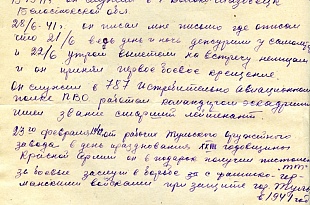 Белостокской обл
28/6-41г. он писал мне письмо где описал
что 21/6 весь день и ночь дежурили у самолета
и 22/6 утром вылетели на встречу немцам
и он принял первое боевое крещение.
Он служил в 787 истребительно авиационном
полку ПВО работал командиром эскадрильи
имел звание старший лейтенант.
23го февраля от рабочих Тульского оружейного
завода в день празднования XXIII годовщины
Красной Армии он в подарок получил пистолет
ТТ
за боевые заслуги в борьбе за с фашистко-гер-
манскими войсками при защите гор Тулы
в 194 году